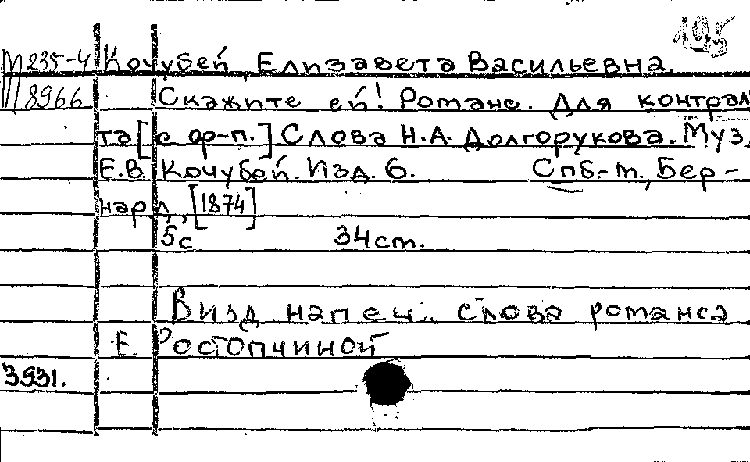 195
М 235-4 Кочубей, Елизавета Васильевна.
8966 Скажите ей! Романс. Для контраль
та [с ф-п.] Слова Н.А. Долгорукова. Муз.
Е.В. Кочубей. Изд. 6. Спб-т, Бер-
нард, [1874]
5с 34ст.
В изд. напеч. слова романса
Е. Ростопчиной
3931.